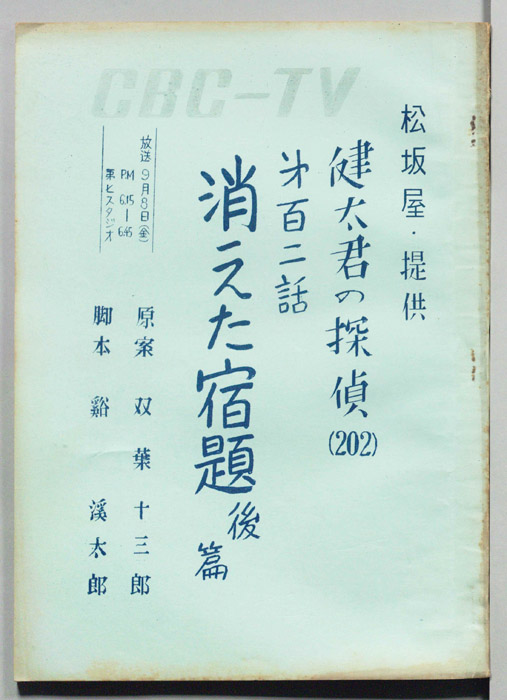 CBC-TV
松坂屋・提供
健太君の探偵(202)
第百二話
消えた宿題 後篇
放送 9月8日(金)
PM 6.15―6.45
第七スタジオ
原案 双葉十三郎
脚本 谿 渓太郎